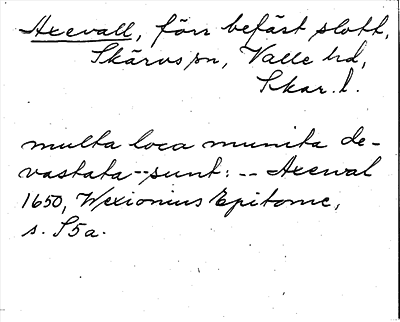 Axevall, förr befäst slott,
Skärvs sn, Valle hd,
Skar. l.
multa loca munita de-
vastata--sunt: -- Axewal
1650, Wexionius Epitome,
s. S5a.